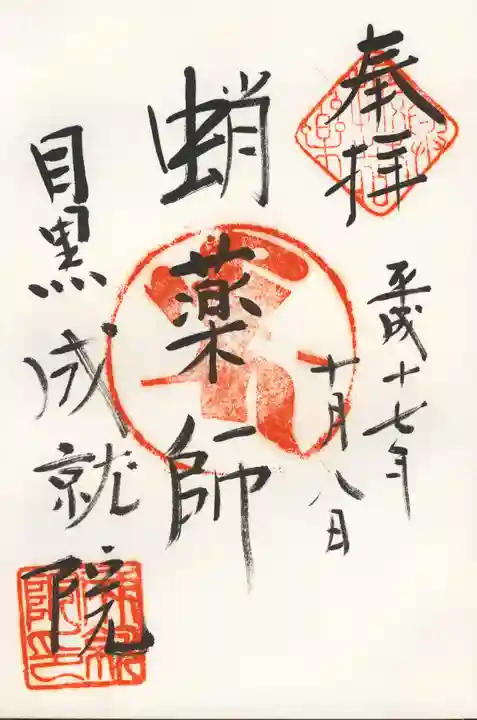 奉拝
平成十七年
十月八日
蛸薬師
目黒成就院